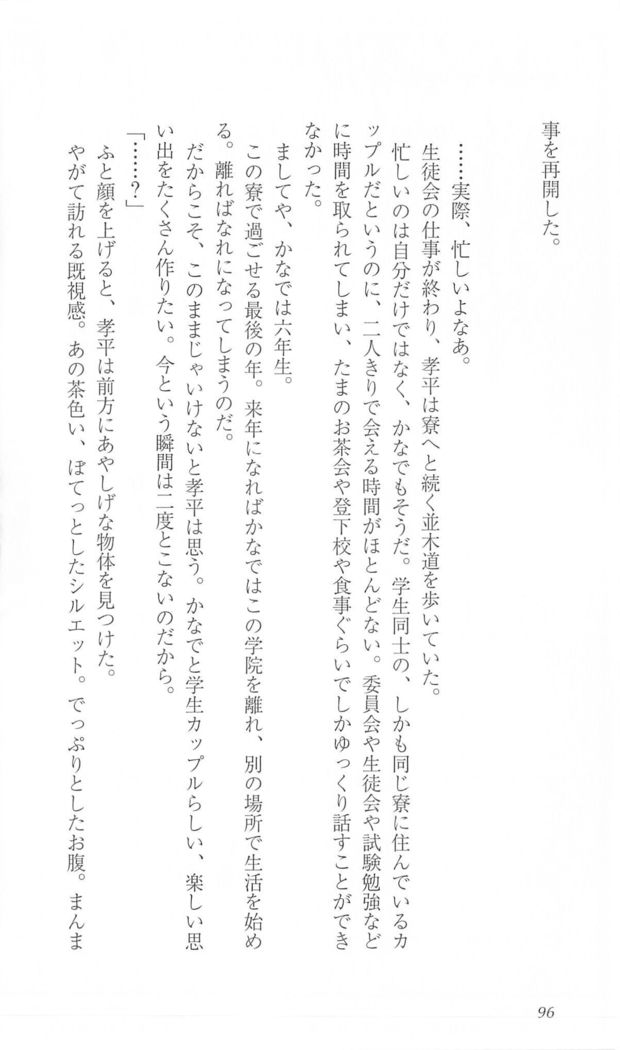 事を再開した。
……実際、忙しいよなあ。
生徒会の仕事が終わり、孝平は寮へと続く並木道を歩いていた。
忙しいのは自分だけではなく、かなでもそうだ。学生同士の、しかも同じ寮に住んでいるカ
ップルだというのに、二人きりで会える時間がほとんどない。委員会や生徒会や試験勉強など
に時間を取られてしまい、たまのお茶会や登下校や食事ぐらいでしかゆっくり話すことができ
なかった。
ましてや、かなでは六年生。
この寮で過ごせる最後の年。来年になればかなではこの学院を離れ、別の場所で生活を始め
る。離ればなれになってしまうのだ。
だからこそ、このままじゃいけないと孝平は思う。かなでと学生カップルらしい、楽しい思
い出をたくさん作りたい。今という瞬間は二度とこないのだから。
「……？」
ふと顔を上げると、孝平は前方にあやしげな物体を見つけた。
やがて訪れる既視感。あの茶色い、ぼてっとしたシルエット。でっぷりとしたお腹。まんま
96